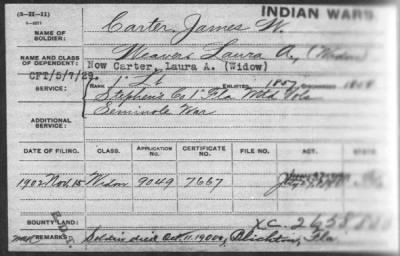 (3-II-11)
INDIAN WARS
NAME OF SOLDIER:
Carter, James W.
NAME AND CLASS OF DEPENDENT:
Meavers Laura A., (Widow)
Now Carter, Laura A. (Widow)
CFI/5/7/29.
SERVICE:
RANK 1" Lt ENLISTED, 1857 DISCHARGED
Stephen's Co 1" Fla Mtd Vols
ADDITIONAL SERVICE:
Seminole War
DATE OF FILING. CLASS. APPLICATION NO. CERTIFICATE NO. FILE NO. ACT. STATE
1902 Nov. 15 Widow 9049 7667
BOUNTY LAND:
XC. 2,658,
REMARKS: Soldier died Oct. 11, 1900, Blichton, Fla